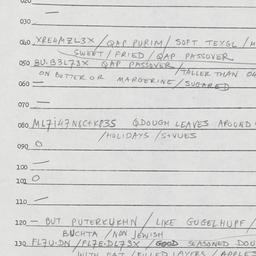 020
030 —
040 XREMZL3X / QAP PURIM / SOFT TEYGL /
SWEET / FRIED / QAP PASSOVER
050 BU.B3L73X QAP PASSOVER / TALLER THAN
ON BUTTER OR MARGERINE / SUGARED
060 —
070 —
080 ML7i47N6C+KP3S @DOUGH LEAVES AROUND
/HOLIDAYS / S+VUES
090 O
100 —
101 O
110 —
120 — BUT PUTERKUKHN / LIKE GUGELHUPF /
BUCHTA / NON JEWISH
130 FL7U.DN / FL7E.DL73X / GOOD SEASONED DOU
WITH FAT / FILLED LAYERS / APPLES